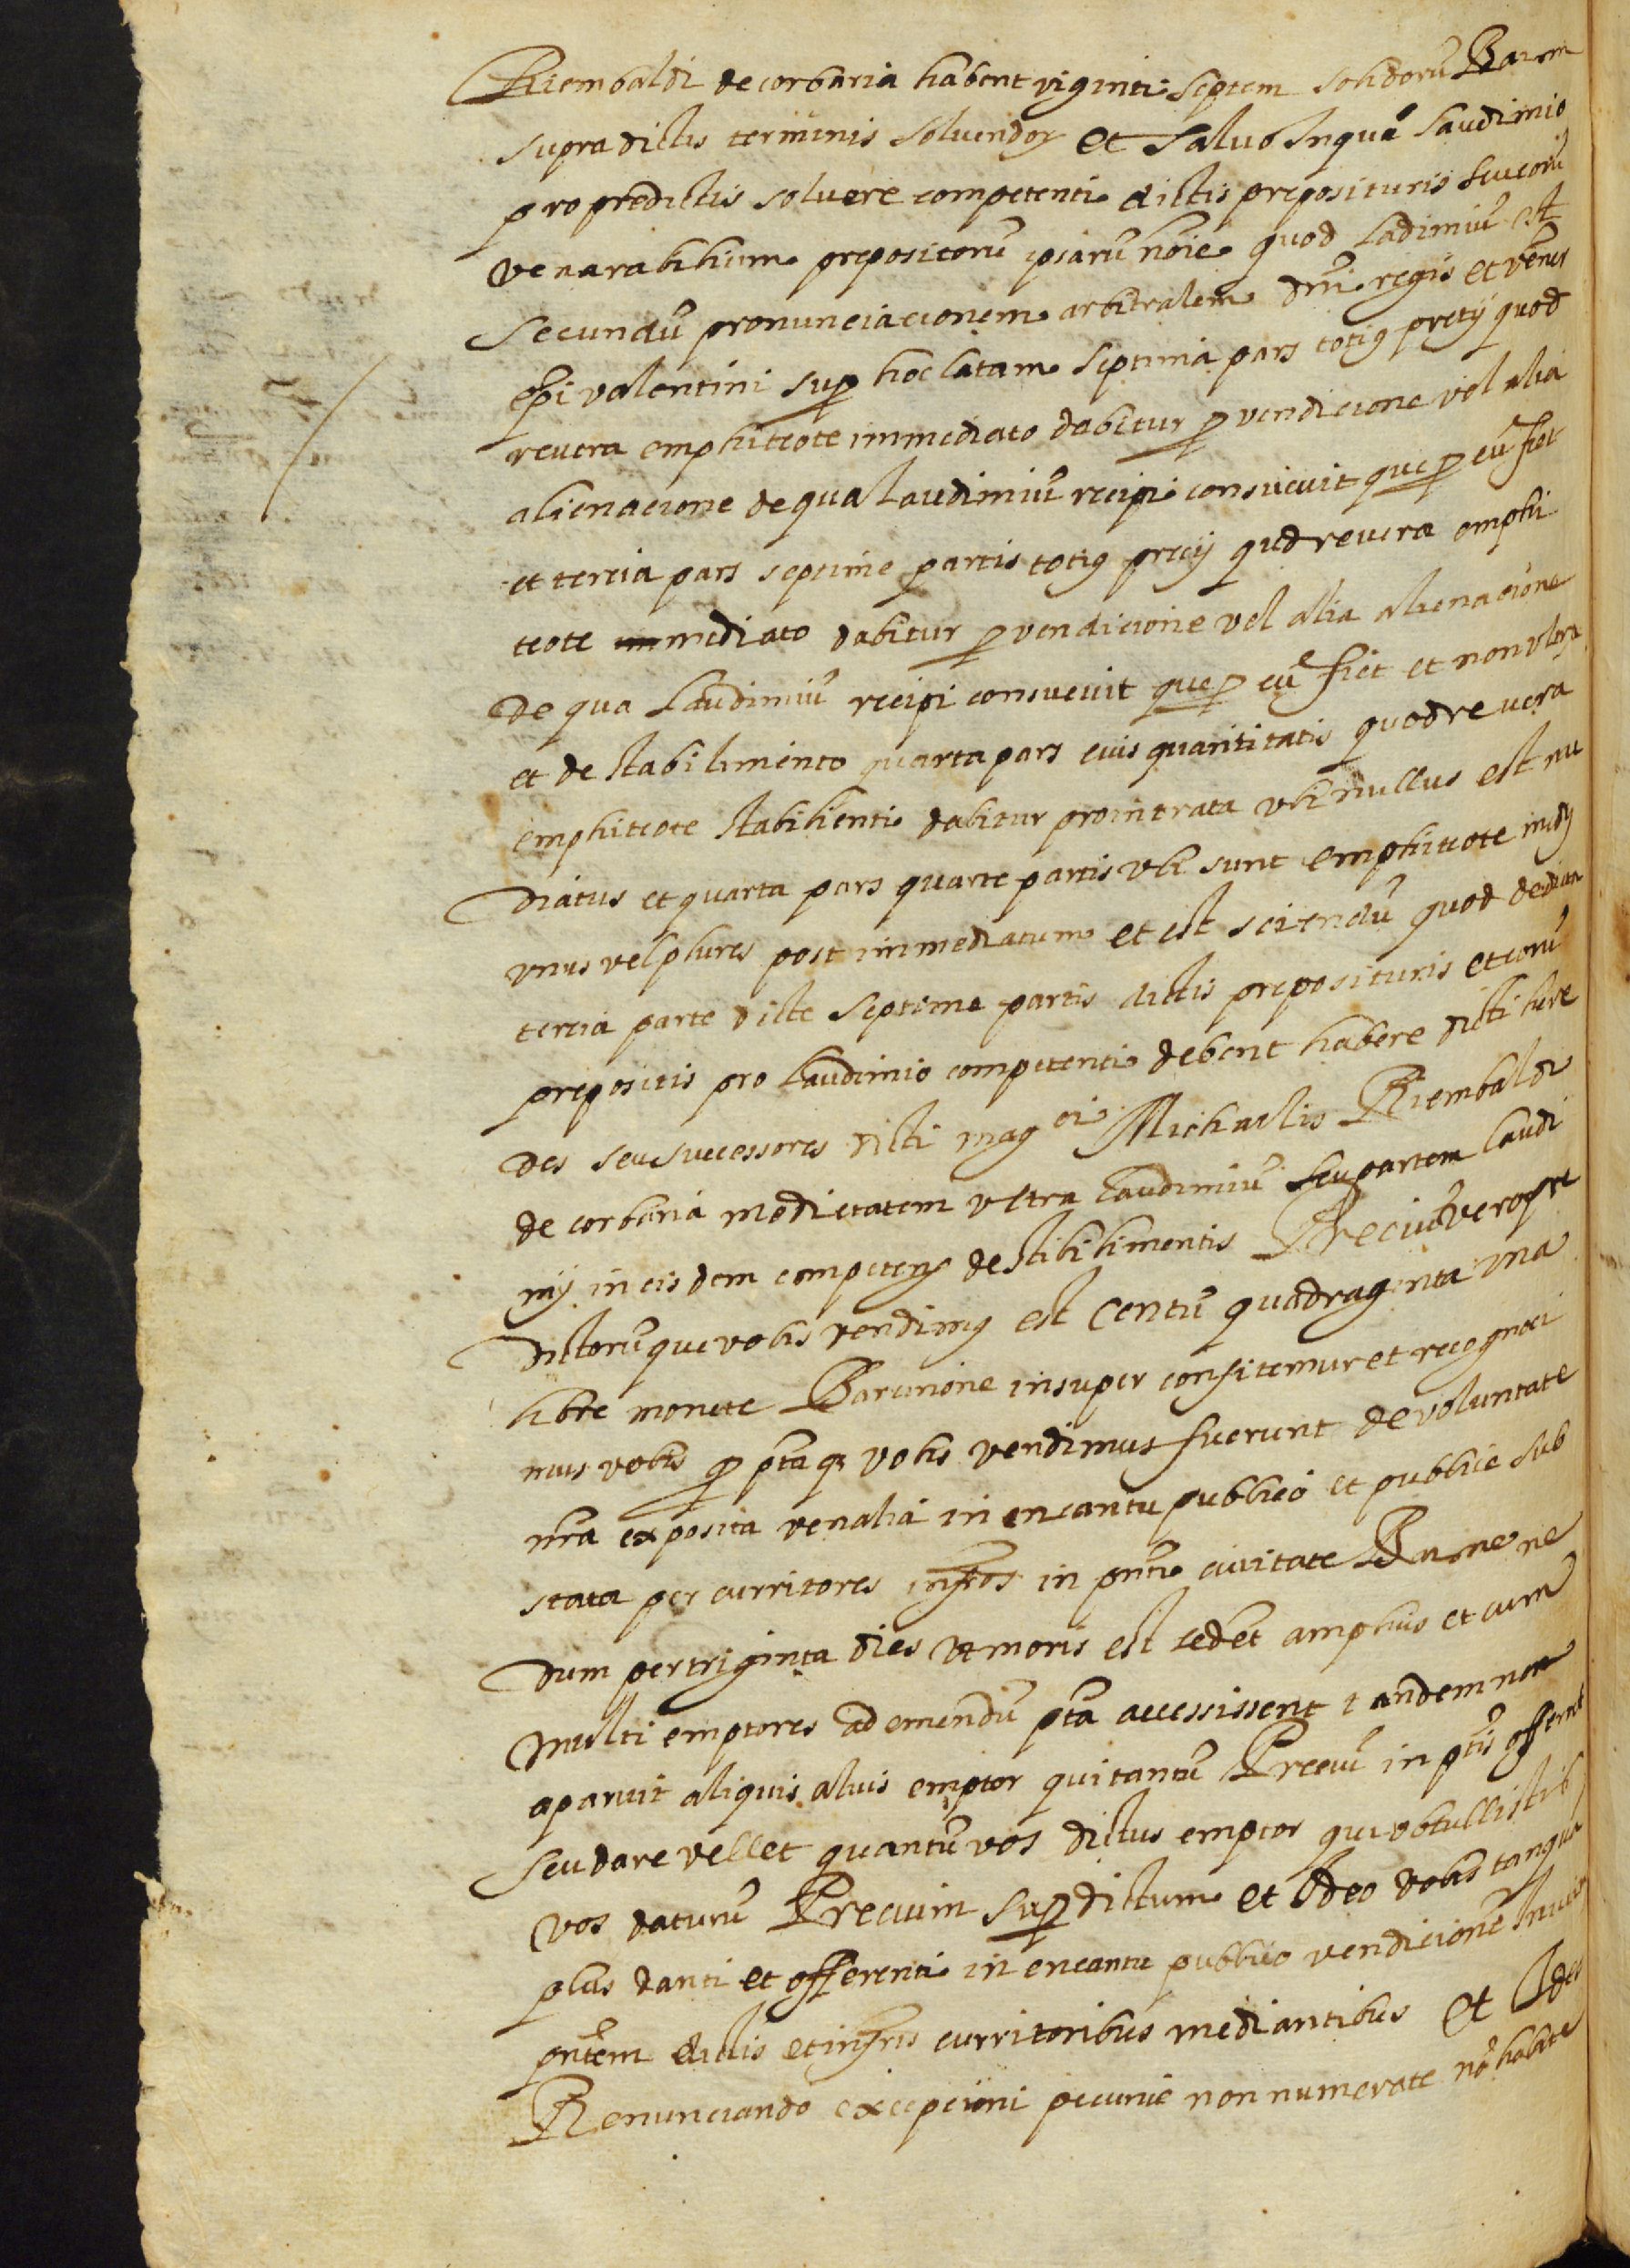 Riembaldi de corbaria habent viginti septem solidorũ Barñm
supra dictis terminis solvendoꝝ et salvo Inquã Laudimio
pro predictis solvere competenti dictis preposituris seu eorũ
venarabilium prepositorũ ipsarũ noĩe quod ladimiũ est
secundũ pronunciacionem arbitralem dñi regis et vener
epĩ valentini sup hoc latam septima pars totiꝯ pretij quod
revera emphiteote immediato dabitur ꝑ vendicione vel alia
alienacione de qua Laudimiũ recipi consuevit que ꝑ eũ fiet
et tercia pars septime partis totiꝯ precij qud revera emphi
teote mediato dabitur ꝑ vendicione vel alia alienacione
De qua Laudimiũ recipi consuevit que ꝑ eũ fiet et non ultra
et de stabilimento quarta pars eius quantitatis quod revera
emphiteote stabilienti dabitur pro intrata ubi nullus est me
diatus et quarta pars quarte partis ubi sunt emphiteote medij
unus vel plures post immediatum et est sciendũ quod de dicta
tercia parte dicte septeme partis dictis preposituris et eorũ
prepositis pro Laudimio competenti debent habere dicti here
des seu successores dicti magci Michaelis Riembaldi
de corbaria medietatem ultra Laudimiũ seu partem laudi
mij in eisdem competenꝭ de stibilimentis Preciũ vero pre
dictorũ que vobis vendimꝯ est Centũ quadraginta una
libre monete Barcinone insuper confitemur et recognosci
mus vobis ꝙ pᵗᵃ que vobis vendimus fuerunt de voluntate
nr̃a exposita venalia in encantu publico et publice sub
stata per curritores infr̃os in pñti civitate Barne ne
dum per triginta dies ut moris est sed et amplius et cum
multi emptores ad emendũ pᵗᵃ accessissent tandem non
aparuit aliquis alius emptor qui tantũ Preciũ in pᵗⁱˢ offerret
seu dare vellet quantũ vos dictus emptor qui obtullistis
vos daturũ Precium sup dictum et Ideo vobis tanquã
plus danti et offerenti in encantu publico vendicionẽ
pñtem dictis et infr̃is curritoribus mediantibus Et Ideo
Renunciando excepcioni pecunie non numerate nõ habite